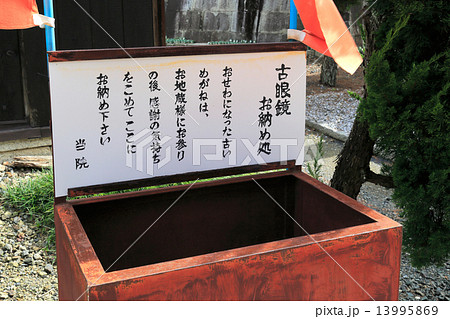 古眼鏡
お納め処
おせわになった古い
めがねは、
お地蔵様にお参り
の後、感謝の気持ち
をこめてここに
お納め下さい
当院
PIXTA
pixta.jp - 13995869